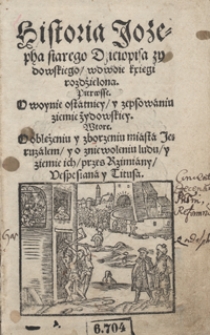 Historia Joze-
pha starego Dzieiopisa zy
dowskiego / wdwoie kxiegi
rozdzielona.
Pierwsse.
O woynie ostatniey / y zepsowaniu
ziemie żydowskiey.
Wtore.
O obleżeniu y zborzeniu miasta Je
ruzalem / y o zniewoleniu ludu / y
ziemie ich / przes Rzimiany /
Vespesiana y Titusa.
6.704